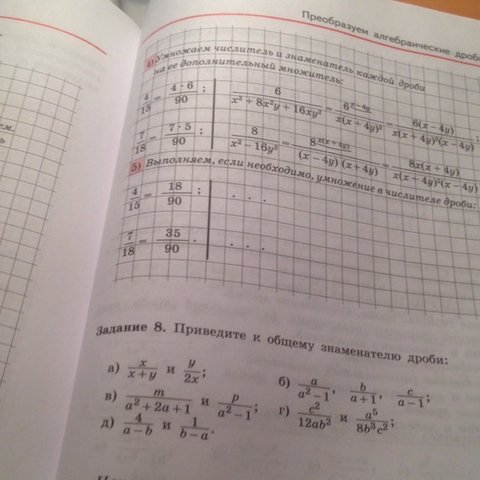 Преобразуем алгебраические дроби
4) Умножаем числитель и знаменатель каждой дроби
на ее дополнительный множитель:
4/15 = 4 · 6/90 ; 6/(x³ + 8x²y + 16xy²) = 6^(x−4y)/(x(x + 4y)²) = 6(x − 4y)/(x(x + 4y)²(x − 4y)
7/18 = 7 · 5/90 ; 8/(x² − 16y²) = 8^(x(x + 4y))/((x − 4y)(x + 4y)) = 8x(x + 4y)/(x(x + 4y)²(x − 4y)
5) Выполняем, если необходимо, умножение в числителе дроби:
4/15 = 18/90 ; . . .
7/18 = 35/90 . . . .
Задание 8. Приведите к общему знаменателю дроби:
а) x/(x + y) и y/2x; б) a/(a² − 1), b/(a + 1), c/(a − 1);
в) m/(a² + 2a + 1) и p/(a² − 1); г) c²/12ab² и a⁵/8b³c²;
д) 4/(a − b) и 1/(b − a).